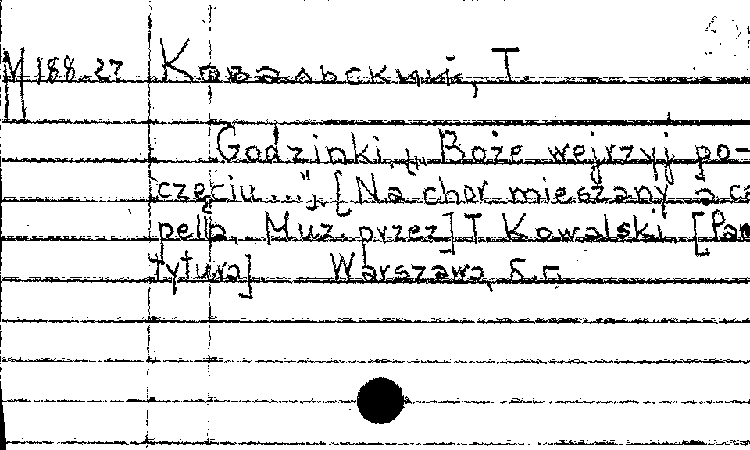 М 188-27 Ковальский, Т.
Godzinki „Boże wejrzyj po-
częciu..." [Na chór mieszany a ca
pella. Muz. przez] T Kowalski [Par
tytura] Warszawa, б.г.